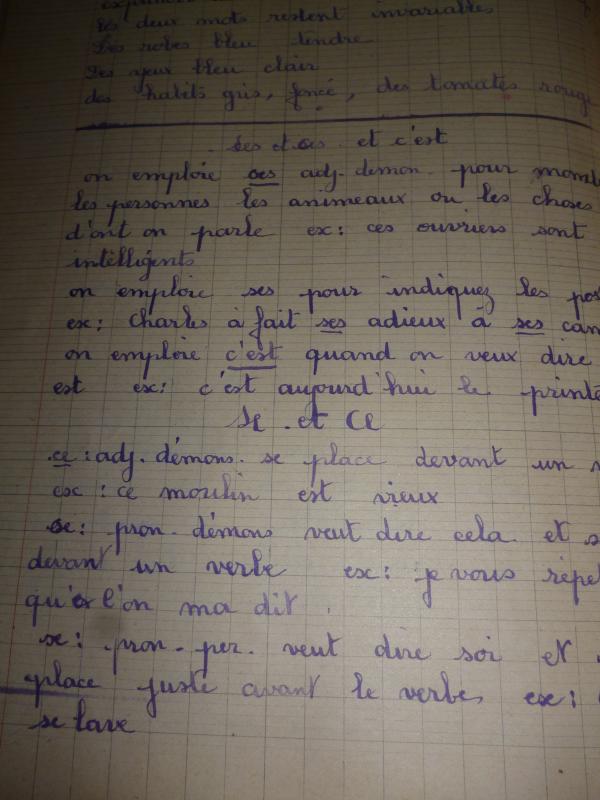 les deux mots restent invariables
Des robes bleu tendre
Des yeux bleu clair
des habits gris, foncé, des tomates rouge
ses et ces et c'est
on emploie ces adj. demon. pour
les personnes les animeaux ou les choses
d'ont on parle ex: ces ouvriers sont
intelligents
on emploie ses pour indiquez les
ex: charles à fait ses adieux à ses
on emploie c'est quand on veux dire
est ex: c'est aujourd'hui le
se et ce
ce: adj. démons. se place devant un
ex: ce moulin est vieux
ce: pron. démons veut dire cela et
devant un verbe ex: je vous
l'on ma dit.
se: pron. per. veut dire soi et
place juste avant le verbe, ex:
se lave